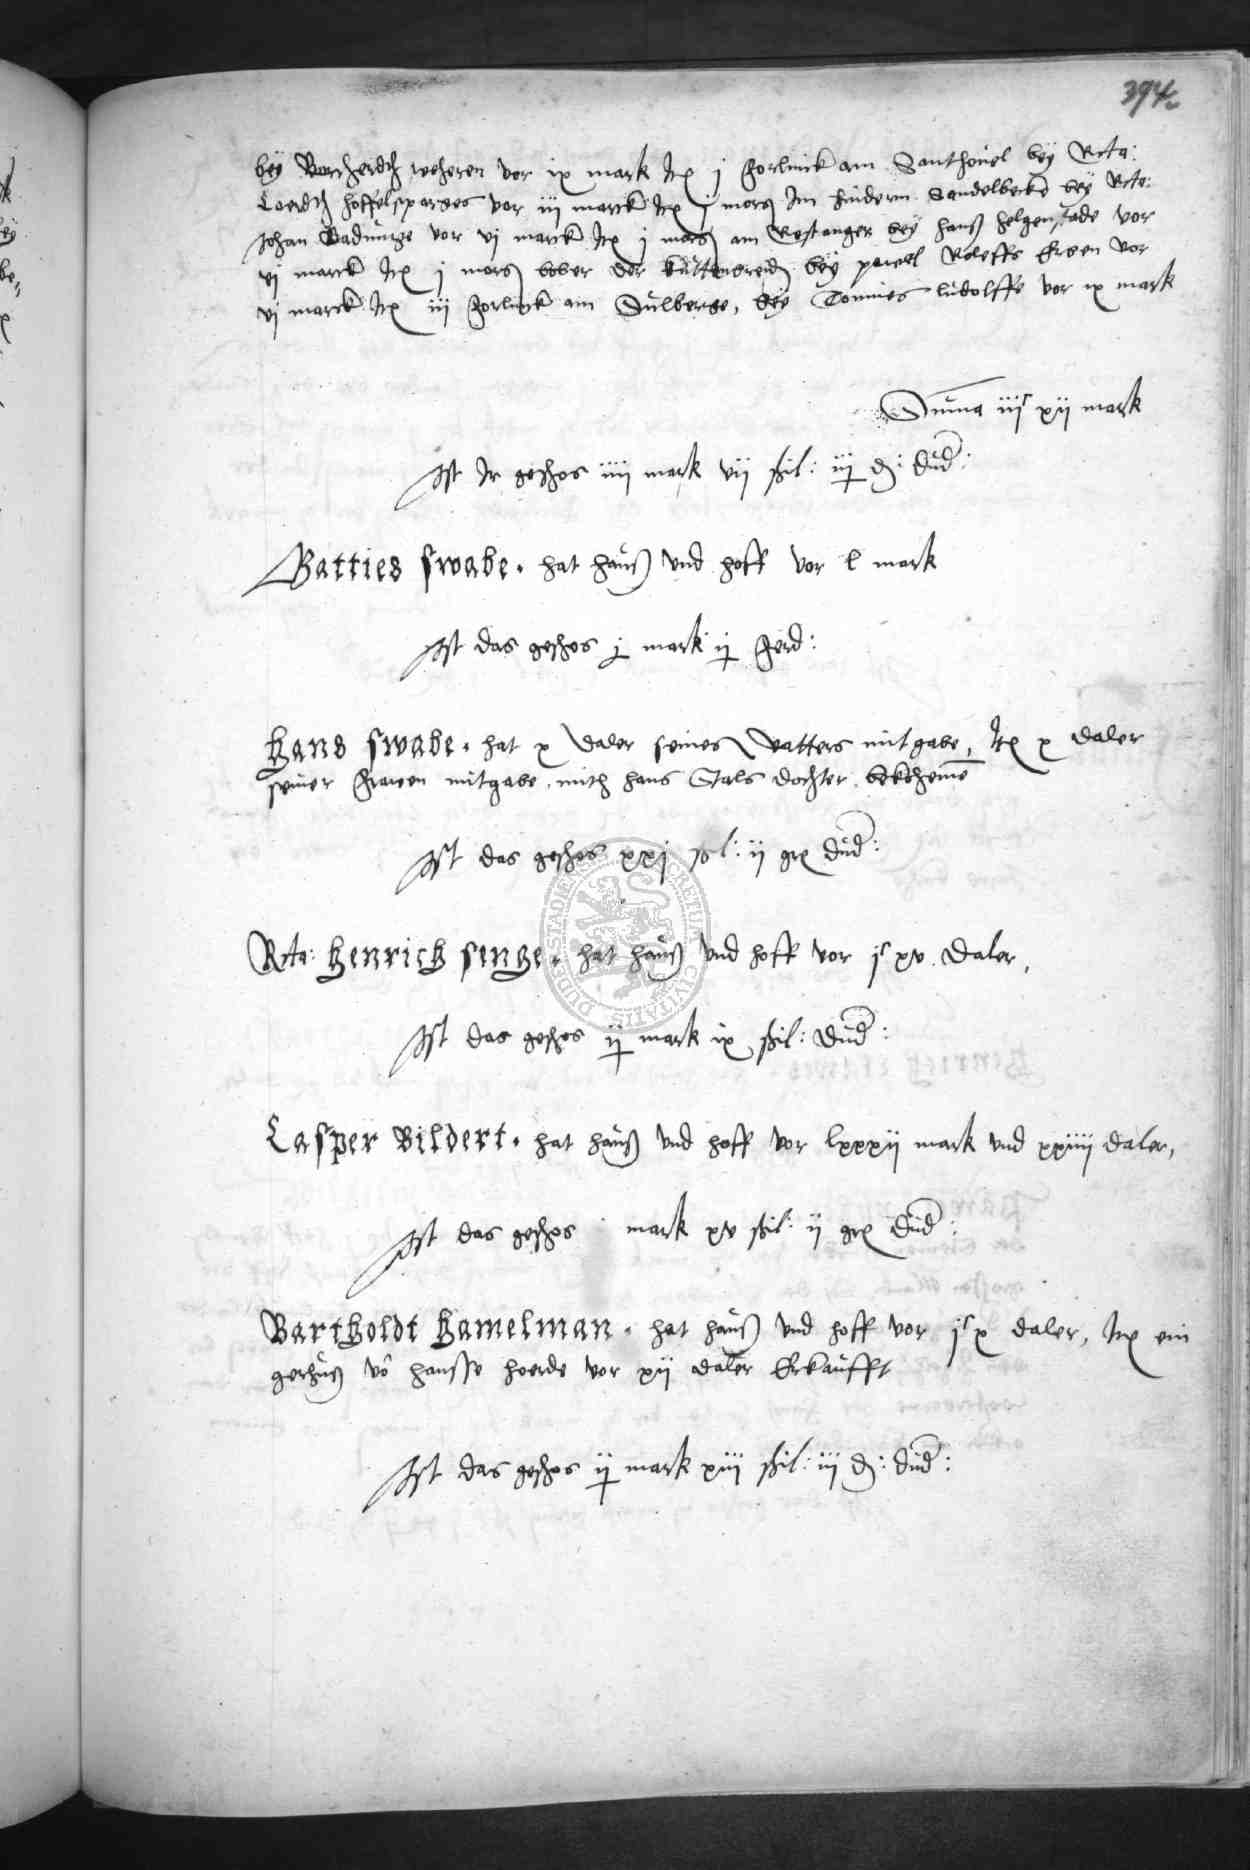 394
bey Borcherdt weheren vor ix mark Itē j Forlinck am Santhouel bey Rcta:
Coerdt Hoffelsparges vor iij marck Itē j morg Im hindern Sandelbeke bey Rcte:
Johan Badunge vor vj marck Itē j morg am Restanger bey Hans Helgenstade vor
vj marck Itē j morg bober der bey pawel Roleffs Erben vor
vj marck Itē iij Forlinck am Sulberge, bey Tonnies ludolffe vor ix mark
Suma iijc xij mark
Ist Ir geschos iiij mark vij schil: iij d: dud:
Matties swabe. hat hauß vnd hoff vor l mark
Ist das geschos j mark ij ferd:
Hans swabe. hat x daler seines vatters mitgabe, Itē x daler
seiner frawen mitgabe, mith hans Stals dochter bekhomē
Ist das geschos xxj sol: ij gr dud:
Rcta: Henrich senge. hat hauß vnd hoff vor jc xv daler,
Ist das geschos ij mark ix schil: dud:
Casper Bildert. hat hauß vnd hoff vor lxxxij mark vnd xxiiij daler,
Ist das geschos mark xv schil: ij gr dud:
Bartholdt Hamelman. hat hauß vnd hoff vor jc x daler, Itē ein
gerhuß vō hansse hoerde vor xij daler Erkaufft
Ist das geschos ij mark xiij schil: iij d: dud:
SECRETUM CIVITATIS DUDERSTADIENSIS